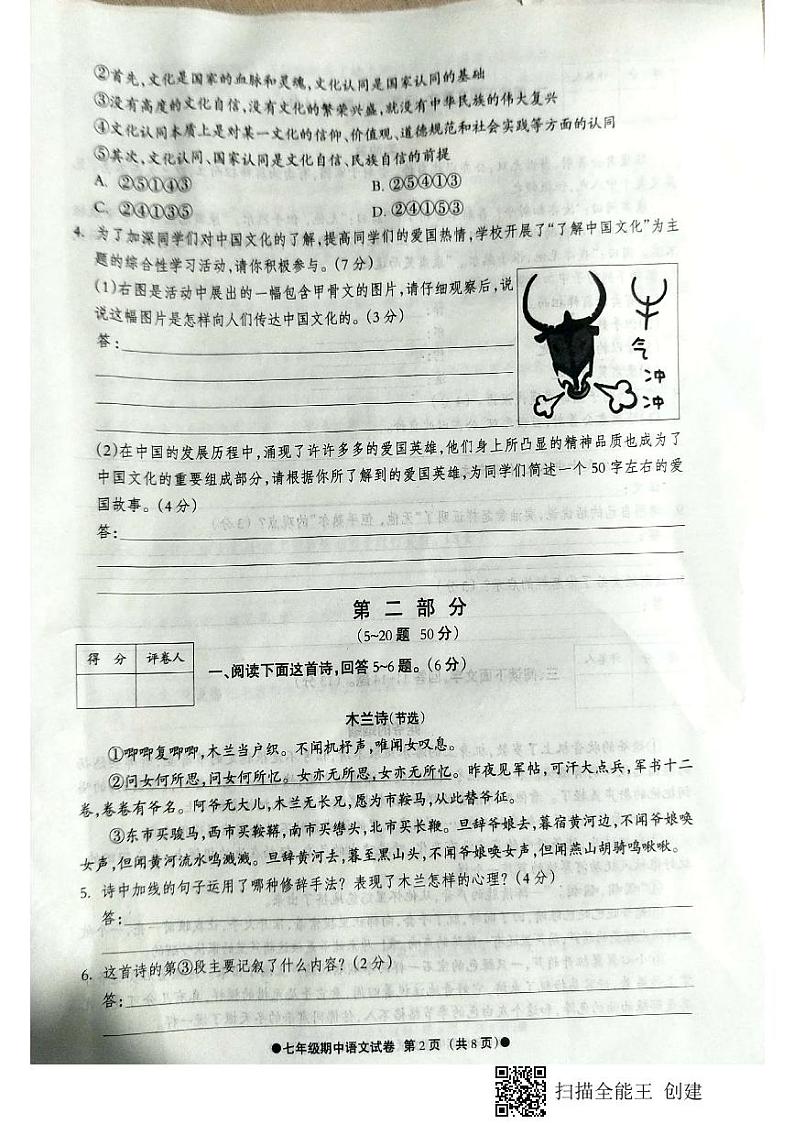 ②首先,文化是国家的血脉和灵魂,文化认同是国家认同的基础
③没有高度的文化自信,没有文化的繁荣兴盛,就没有中华民族的伟大复兴
④文化认同本质上是对某一文化的信仰、价值观、道德规范和社会实践等方面的认同
⑤其次,文化认同、国家认同是文化自信、民族自信的前提
A. ②⑤①④③ B. ②⑤④①③
C. ②④①③⑤ D. ②④①⑤③
4. 为了加深同学们对中国文化的了解,提高同学们的爱国热情,学校开展了“了解中国文化”为主
题的综合性学习活动,请你积极参与。(7分)
(1)右图是活动中展出的一幅包含甲骨文的图片,请仔细观察后,说
说这幅图片是怎样向人们传达中国文化的。(3分)
答:
气
冲
冲
(2)在中国的发展历程中,涌现了许许多多的爱国英雄,他们身上所凸显的精神品质也成为了
中国文化的重要组成部分,请根据你所了解到的爱国英雄,为同学们简述一个50字左右的爱
国故事。(4分)
答:
第二部分
(5~20题 50分)
得 分 评卷人
一、阅读下面这首诗,回答5~6题。(6分)
木兰诗(节选)
①唧唧复唧唧,木兰当户织。不闻机杼声,唯闻女叹息。
②问女何所思,问女何所忆。女亦无所思,女亦无所忆。昨夜见军帖,可汗大点兵,军书十二
卷,卷卷有爷名。阿爷无大儿,木兰无长兄,愿为市鞍马,从此替爷征。
③东市买骏马,西市买鞍鞯,南市买辔头,北市买长鞭。旦辞爷娘去,暮宿黄河边,不闻爷娘唤
女声,但闻黄河流水鸣溅溅。旦辞黄河去,暮至黑山头,不闻爷娘唤女声,但闻燕山胡骑鸣啾啾。
5. 诗中加线的句子运用了哪种修辞手法?表现了木兰怎样的心理?(4分)
答:
6. 这首诗的第③段主要记叙了什么内容?(2分)
答:
●七年级期中语文试卷 第2页 (共8页)●
扫描全能王 创建